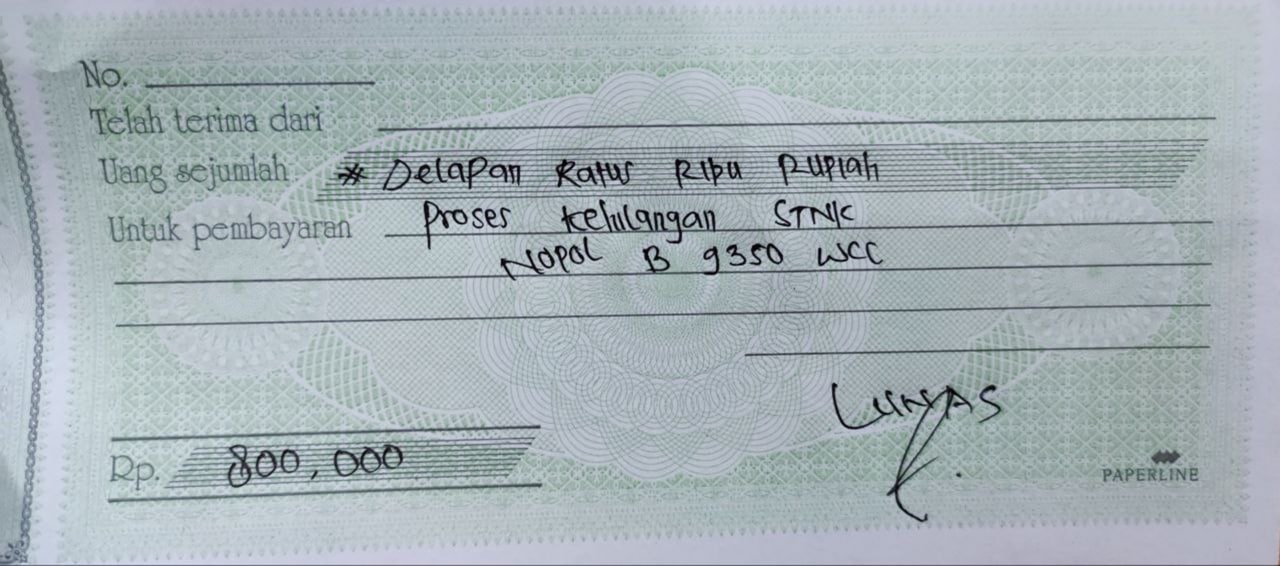 No.
Telah terima dari
Uang sejumlah * Delapan Ratus Ribu Rupiah
Untuk pembayaran Proses kehilangan STNK
NOPOL B 9350 WCC
LUNAS
Rp. 800,000
PAPERLINE